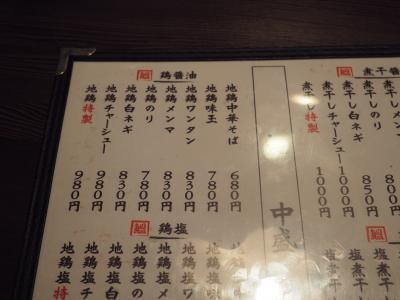 煮干醤
煮干しメン
煮干しのり 800円
煮干し白ネギ 850円
煮干しチャーシュー 1000円
煮干し特製 1000円
中盛
鶏醤油
地鶏中華そば 680円
地鶏味玉 780円
地鶏ワンタン 830円
地鶏メンマ 830円
地鶏のり 780円
地鶏白ネギ 830円
地鶏チャーシュー 980円
地鶏特製 980円
塩煮干
塩煮干
鶏塩
地鶏塩
地鶏塩
地鶏塩
地鶏塩メ
地鶏塩の
地鶏塩白
地鶏塩チ
地鶏塩特